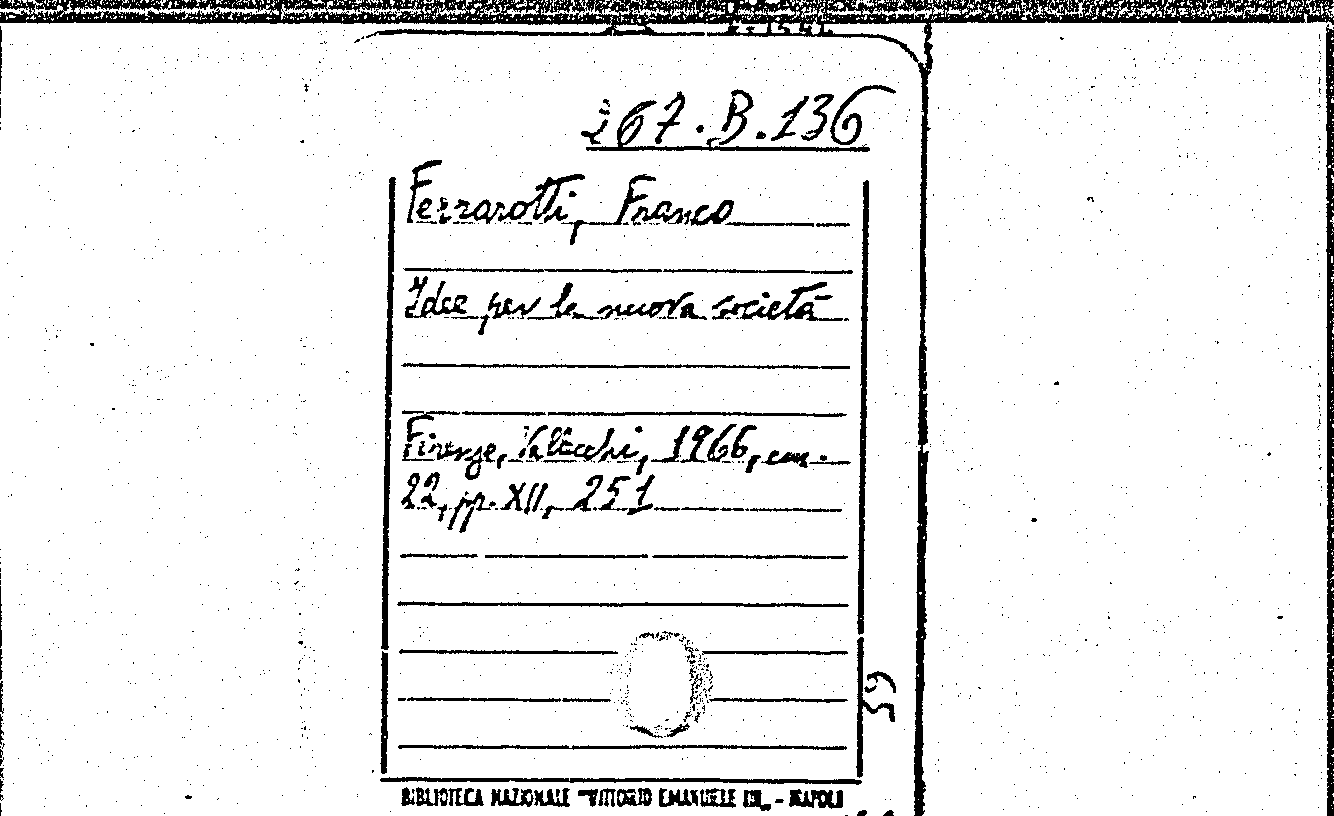 267.B.136
Ferrarotti, Franco
Idee per la nuova società
Firenze, Vallecchi, 1966, cm.
22, pp. XII, 251
59
BIBLIOTECA NAZIONALE "VITTORIO EMANUELE III„ - NAPOLI